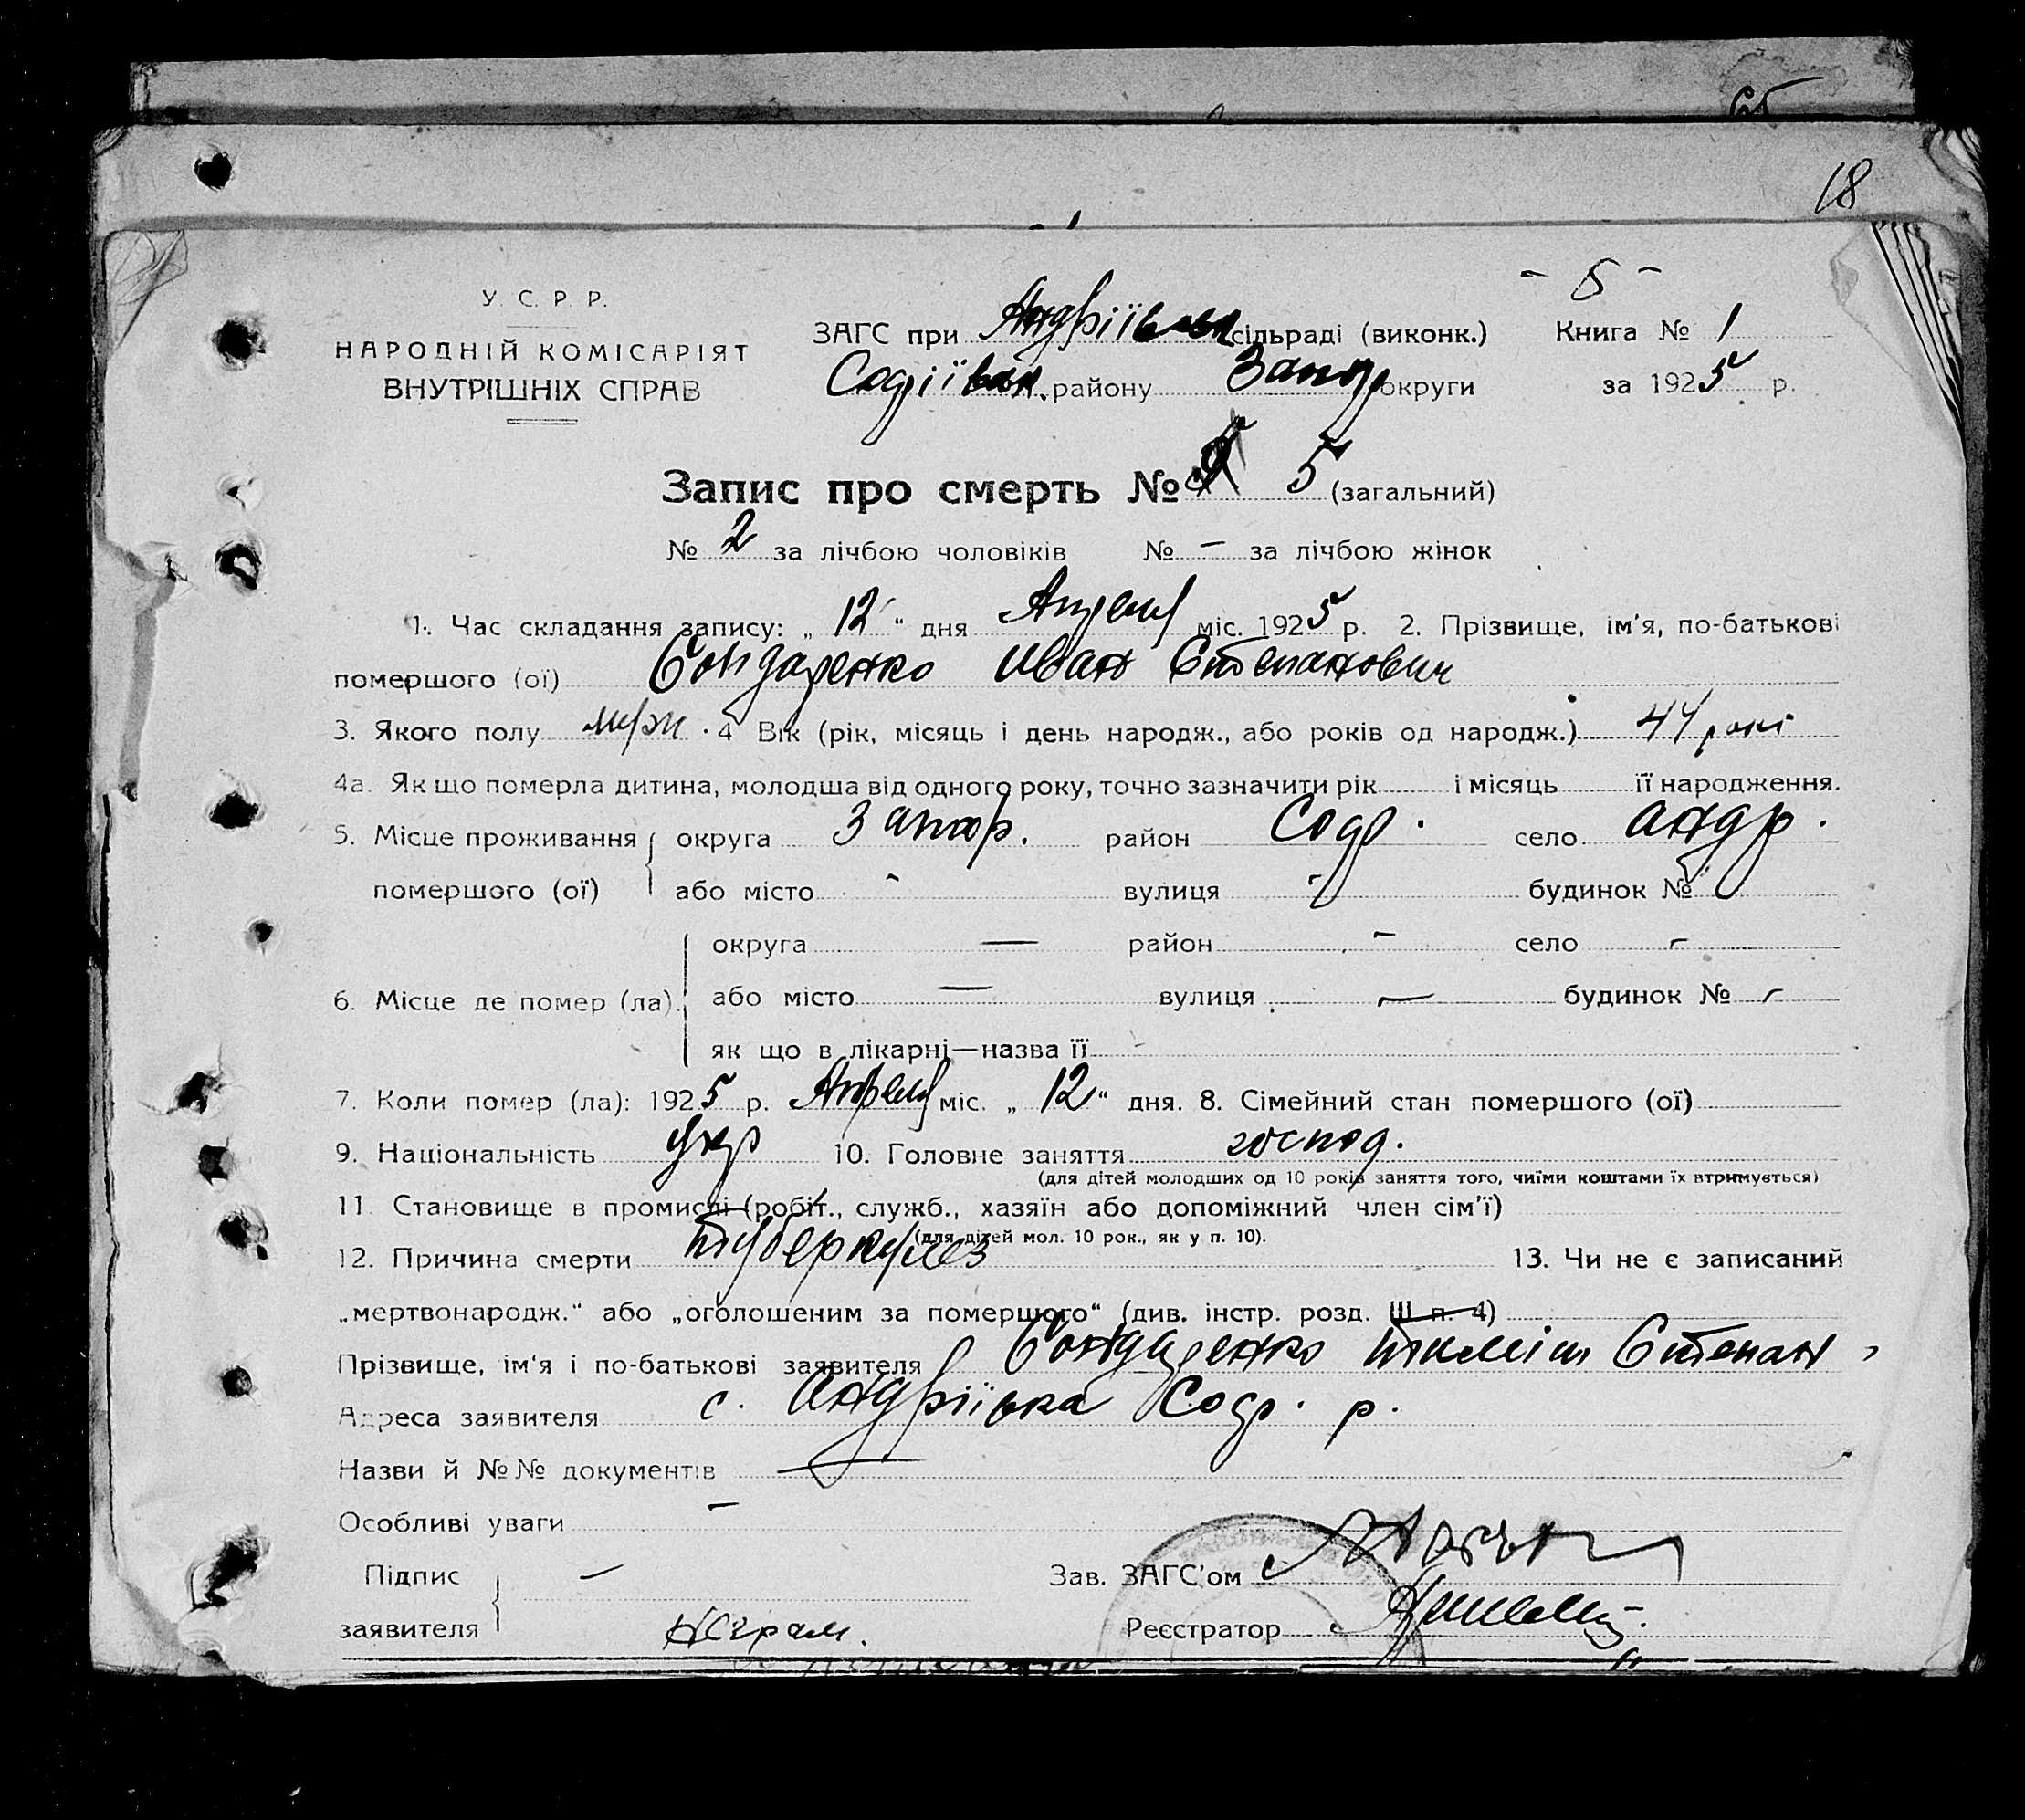 65
18
- 5 -
У. С. Р. Р.
НАРОДНІЙ КОМІСАРІЯТ
ВНУТРІШНІХ СПРАВ
ЗАГС при Андріївськ сільраді (виконк.) Книга № 1
району Запор округи за 1925 р.
Запис про смерть № 5 (загальний)
№ 2 за лічбою чоловіків № - за лічбою жінок
1. Час складання запису: „ 12 “ дня Апреля міс. 1925 р. 2. Прізвище, ім'я, по-батькові
помершого (ої) Бондаренко Иван Степанович
3. Якого полу муж. 4 Вік (рік, місяць і день народж., або років од народж.) 44 років
4а. Як що померла дитина, молодша від одного року, точно зазначити рік і місяць її народження.
5. Місце проживання округа Запор. район Софі. село Андр.
помершого (ої) або місто - вулиця - будинок №
округа — район - село -
6. Місце де помер (ла) або місто — вулиця — будинок № -
як що в лікарні—назва її
7. Коли помер (ла): 1925 р. Апреля міс. „ 12 “ дня. 8. Сімейний стан помершого (ої)
9. Національність укр 10. Головне заняття господ.
(для дітей молодших од 10 років заняття того, чиїми коштами їх втримується)
11. Становище в промислі (робіт., служб., хазяїн або допоміжний член сім'ї)
(для дітей мол. 10 рок., як у п. 10).
12. Причина смерти туберкулез 13. Чи не є записаний
„мертвонародж.“ або „оголошеним за помершого“ (див. інстр. розд. III п. 4)
Прізвище, ім'я і по-батькові заявителя Бондаренко Степан
Адреса заявителя с. Андріївка Софі. р.
Назви й №№ документів —
Особливі уваги -
Підпис — Зав. ЗАГС'ом
заявителя Неграм. Реєстратор